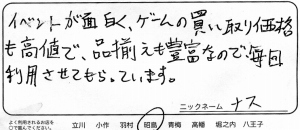 イベントが面白く、ゲームの買い取り価格
も高値で、品揃えも豊富なので毎回
利用させてもらっています。
ニックネーム ナス
よく利用されるお店を
○で囲んでください。
立川 小作 羽村 昭島 青梅 高幡 堀之内 八王子